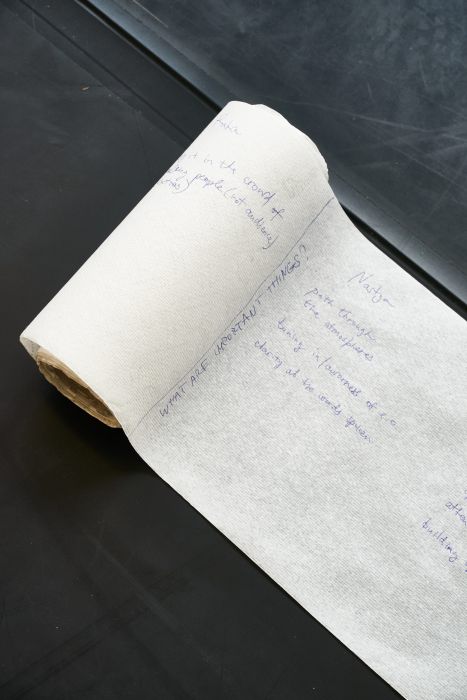 it in the crowd of
people (not audience)
WHAT ARE IMPORTANT THINGS?
Nastya
path through
the atmospheres
tuning in/awareness of e.o.
clarity at the words spoken
building